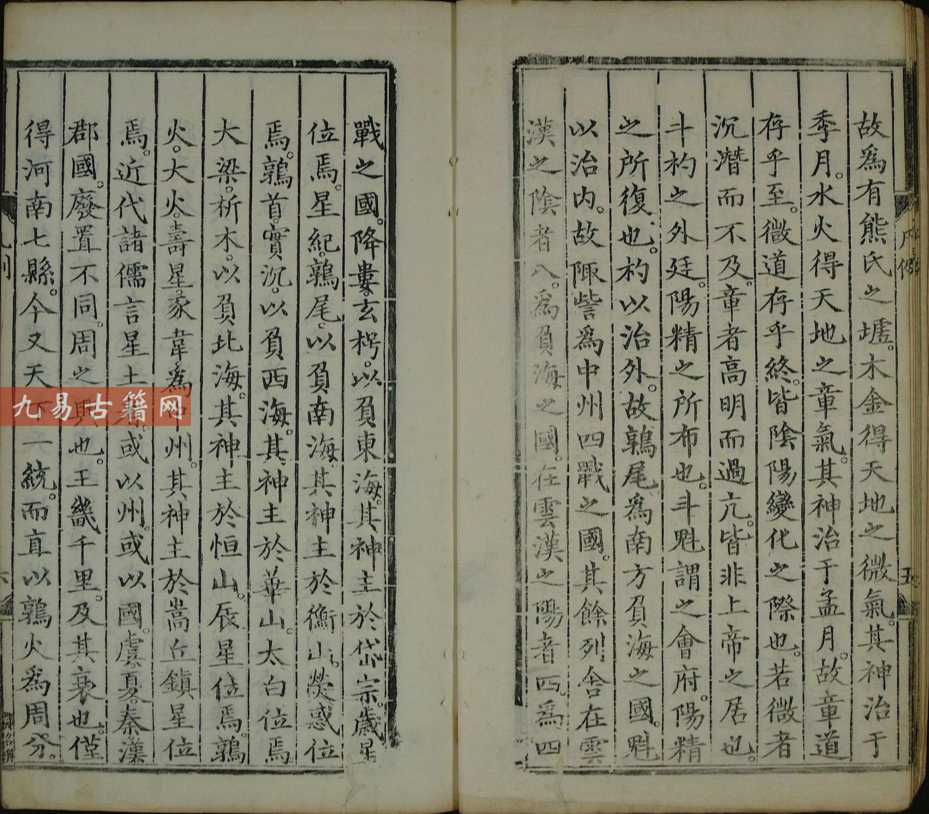 故爲有熊氏之墟。木金得天地之微氣。其神治于
季月。水火得天地之章氣。其神治于孟月。故章道
存乎至。微道存乎終。皆陰陽變化之際也。若微者
沉潛而不及。章者高明而過亢。皆非上帝之居也。
斗杓之外廷。陽精之所布也。斗魁謂之會府。陽精
之所復也。杓以治外。故鶉尾爲南方負海之國。魁
以治内。故陬訾爲中州四戰之國。其餘列舍在雲
漢之陰者八。爲負海之國。在雲漢之陽者四。爲四
五
戰之國。降婁玄枵。以負東海。其神主於岱宗。歲星
位焉。星紀。鶉尾。以負南海。其神主於衡山。熒惑位
焉。鶉首。實沉。以負西海。其神主於華山。太白位焉
大梁。析木。以負北海。其神主於恒山。辰星位焉。鶉
火。大火。壽星。豕韋爲中州。其神主於嵩丘。鎮星位
焉。近代諸儒言星土。或以州。或以國。虞夏秦漢
郡國。廢置不同。周之興也。王畿千里。及其衰也。僅
得河南七縣。今又天下一統。而直以鶉火爲周分。
九易古籍网